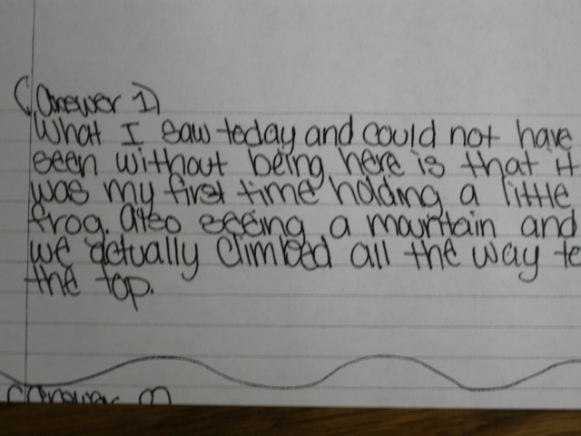 (Answer 1)
What I saw today and could not have
seen without being here is that it
was my first time holding a little
frog. Also seeing a mountain and
we actually climbed all the way to
the top.
(Answer